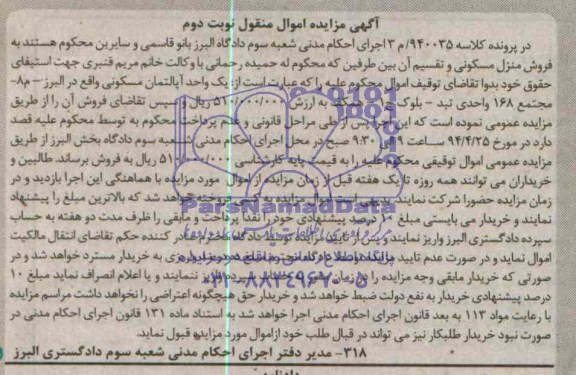 آگهی مزایده اموال منقول نوبت دوم
در پرونده کلاسه ۹۴۰۰۳۵/م ۳ اجرای احکام مدنی شعبه سوم دادگاه البرز بانو قاسمی و سایرین محکوم هستند به
فروش منزل مسکونی و تقسیم آن بین طرفین که محکوم له حمیده رحمانی با وکالت خانم مریم قنبری جهت استیفای
حقوق خود بدوا تقاضای توقیف اموال محکوم علیه را که عبارت است از: یک واحد آپالتمان مسکونی واقع در البرز - م۸-
مجتمع ۱۶۸ واحدی تبد - بلوک همکف به ارزش ۵۱۰/۰۰۰/۰۰۰ ریال و سپس تقاضای فروش آن را از طریق
مزایده عمومی نموده است که این اجرا پس از طی مراحل قانونی و عدم پرداخت محکوم به توسط محکوم علیه قصد
دارد در مورخ ۹۴/۴/۲۵ ساعت ۹ الی ۹:۳۰ صبح در محل اجرای احکام مدنی شعبه سوم دادگاه بخش البرز از طریق
مزایده عمومی اموال توقیفی محکوم علیه را به قیمت پایه کارشناسی ۵۱۰/۰۰۰/۰۰۰ ریال به فروش برساند. طالبین و
خریداران می توانند همه روزه تا یک هفته قبل از زمان مزایده از اموال مورد مزایده با هماهنگی این اجرا بازدید و در
زمان مزایده حضورا شرکت نمایند. بدیهی است اموال مزایده به کسی فروخته خواهد شد که بالاترین مبلغ را پیشنهاد
نمایند و خریدار می بایستی مبلغ ۱۰ درصد پیشنهادی خود را نقدا پرداخت و مابقی را ظرف مدت دو هفته به حساب
سپرده دادگستری البرز واریز نمایند و پس از تایید مزایده توسط دادگاه محترم صادر کننده حکم تقاضای انتقال مالکیت
اموال نماید و در صورت عدم تایید مزایده توسط دادگاه محترم مبلغ ده درصد واریزی به خریدار مسترد خواهد شد و در
صورتی که خریدار مابقی وجه مزایده را در زمان واریز ننمایند و یا اعلام انصراف نماید مبلغ ۱۰
درصد پیشنهادی خریدار به نفع دولت ضبط خواهد شد و خریدار حق هیچگونه اعتراضی را نخواهد داشت مراسم مزایده
با رعایت مواد ۱۱۳ به بعد قانون اجرای احکام مدنی اجرا خواهد شد به استناد ماده ۱۳۱ قانون اجرای احکام مدنی در
صورت نبود خریدار طلبکار نیز می تواند در قبال طلب خود ازاموال مورد مزایده قبول نماید.
۳۱۸- مدیر دفتر اجرای احکام مدنی شعبه سوم دادگستری البرز
ParsNamadData
۰۲۱-۸۸۳۴۹۶۷۰-۵